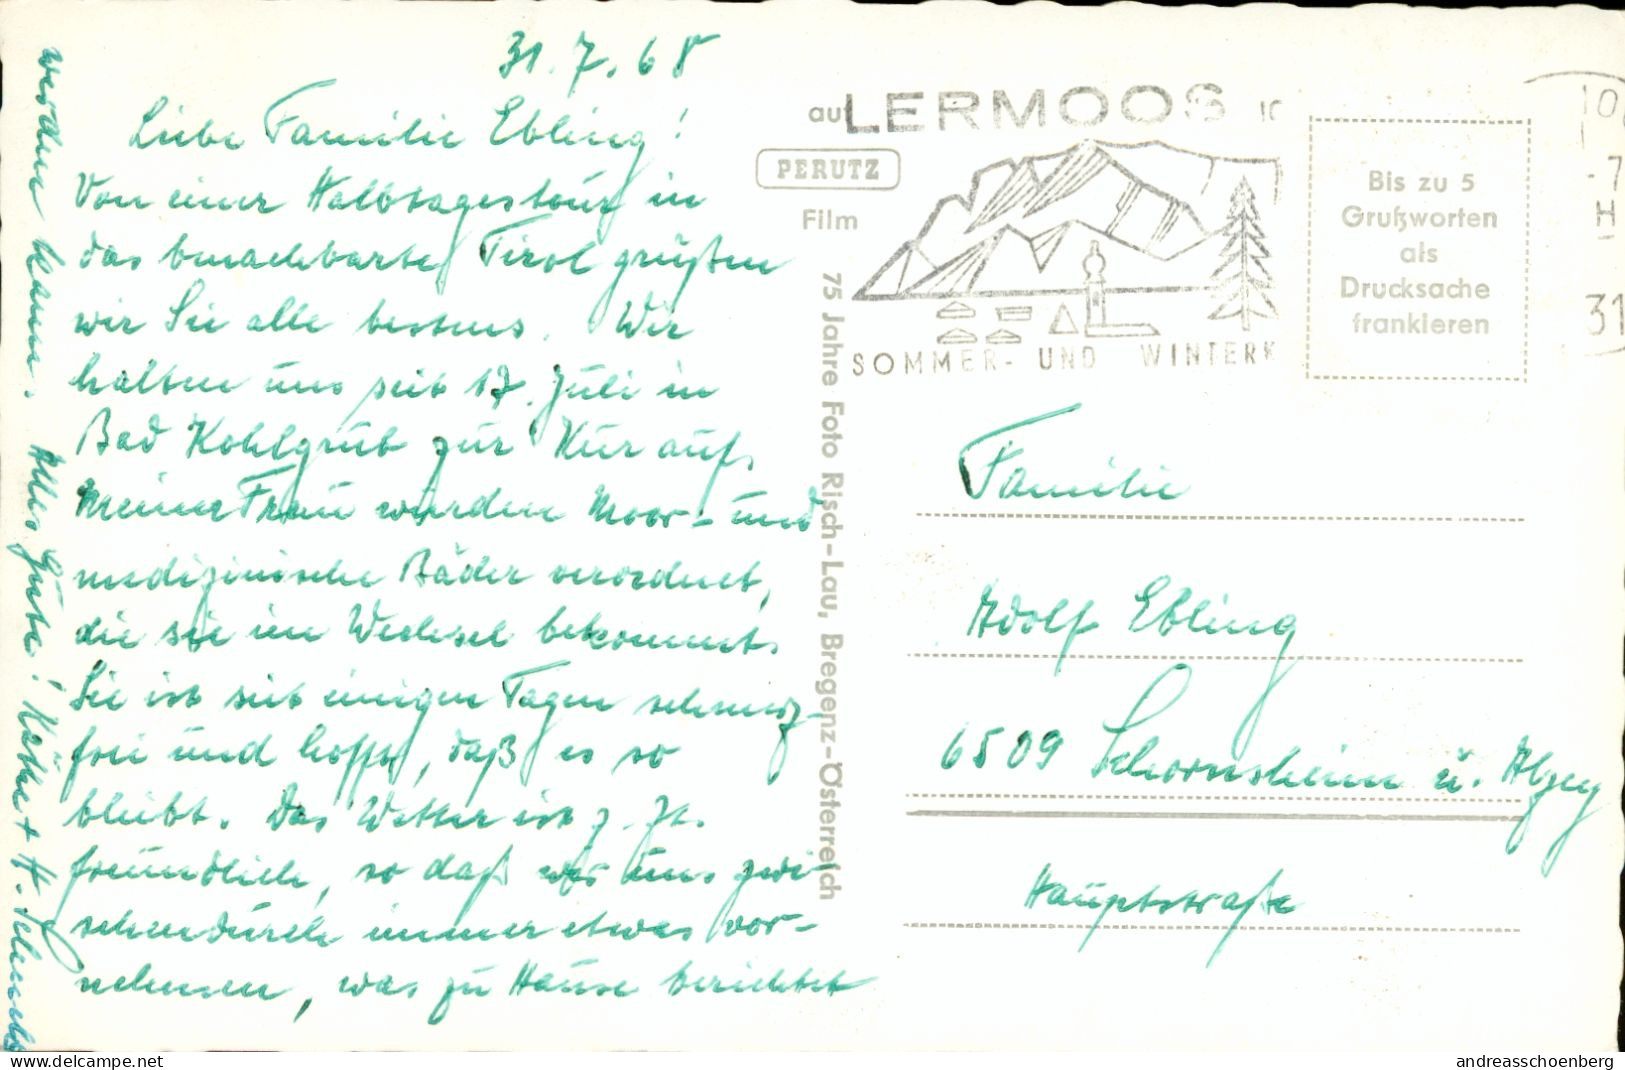 31.7.68
Liebe Familie Ebling!
Von einer Halbtagestour in
das benachbarte Tirol grüßen
wir Sie alle bestens. Wir
halten uns seit 17. Juli in
Bad Kohlgrub zur Kur auf.
Meiner Frau wurden Moor- und
medizinische Bäder verordnet,
die sie im Wechsel bekommt.
Sie ist seit einigen Tagen schmerz-
frei und hofft, daß es so
bleibt. Das Wetter ist z. Zt.
freundlich, so daß wir uns zwi-
schendurch immer etwas vor-
nehmen, was zu Hause berichtet
werden kann. Alles Gute! Käthe + H.
auf
PERUTZ
Film
75 Jahre Foto Risch-Lau, Bregenz-Österreich
LERMOOS
SOMMER- UND WINTERK
Bis zu 5
Grußworten
als
Drucksache
frankieren
-7
H
31
Familie
Adolf Ebling
6509 Schornsheim ü. Alzey
Hauptstraße
delcampe.net
andreasschoenberg